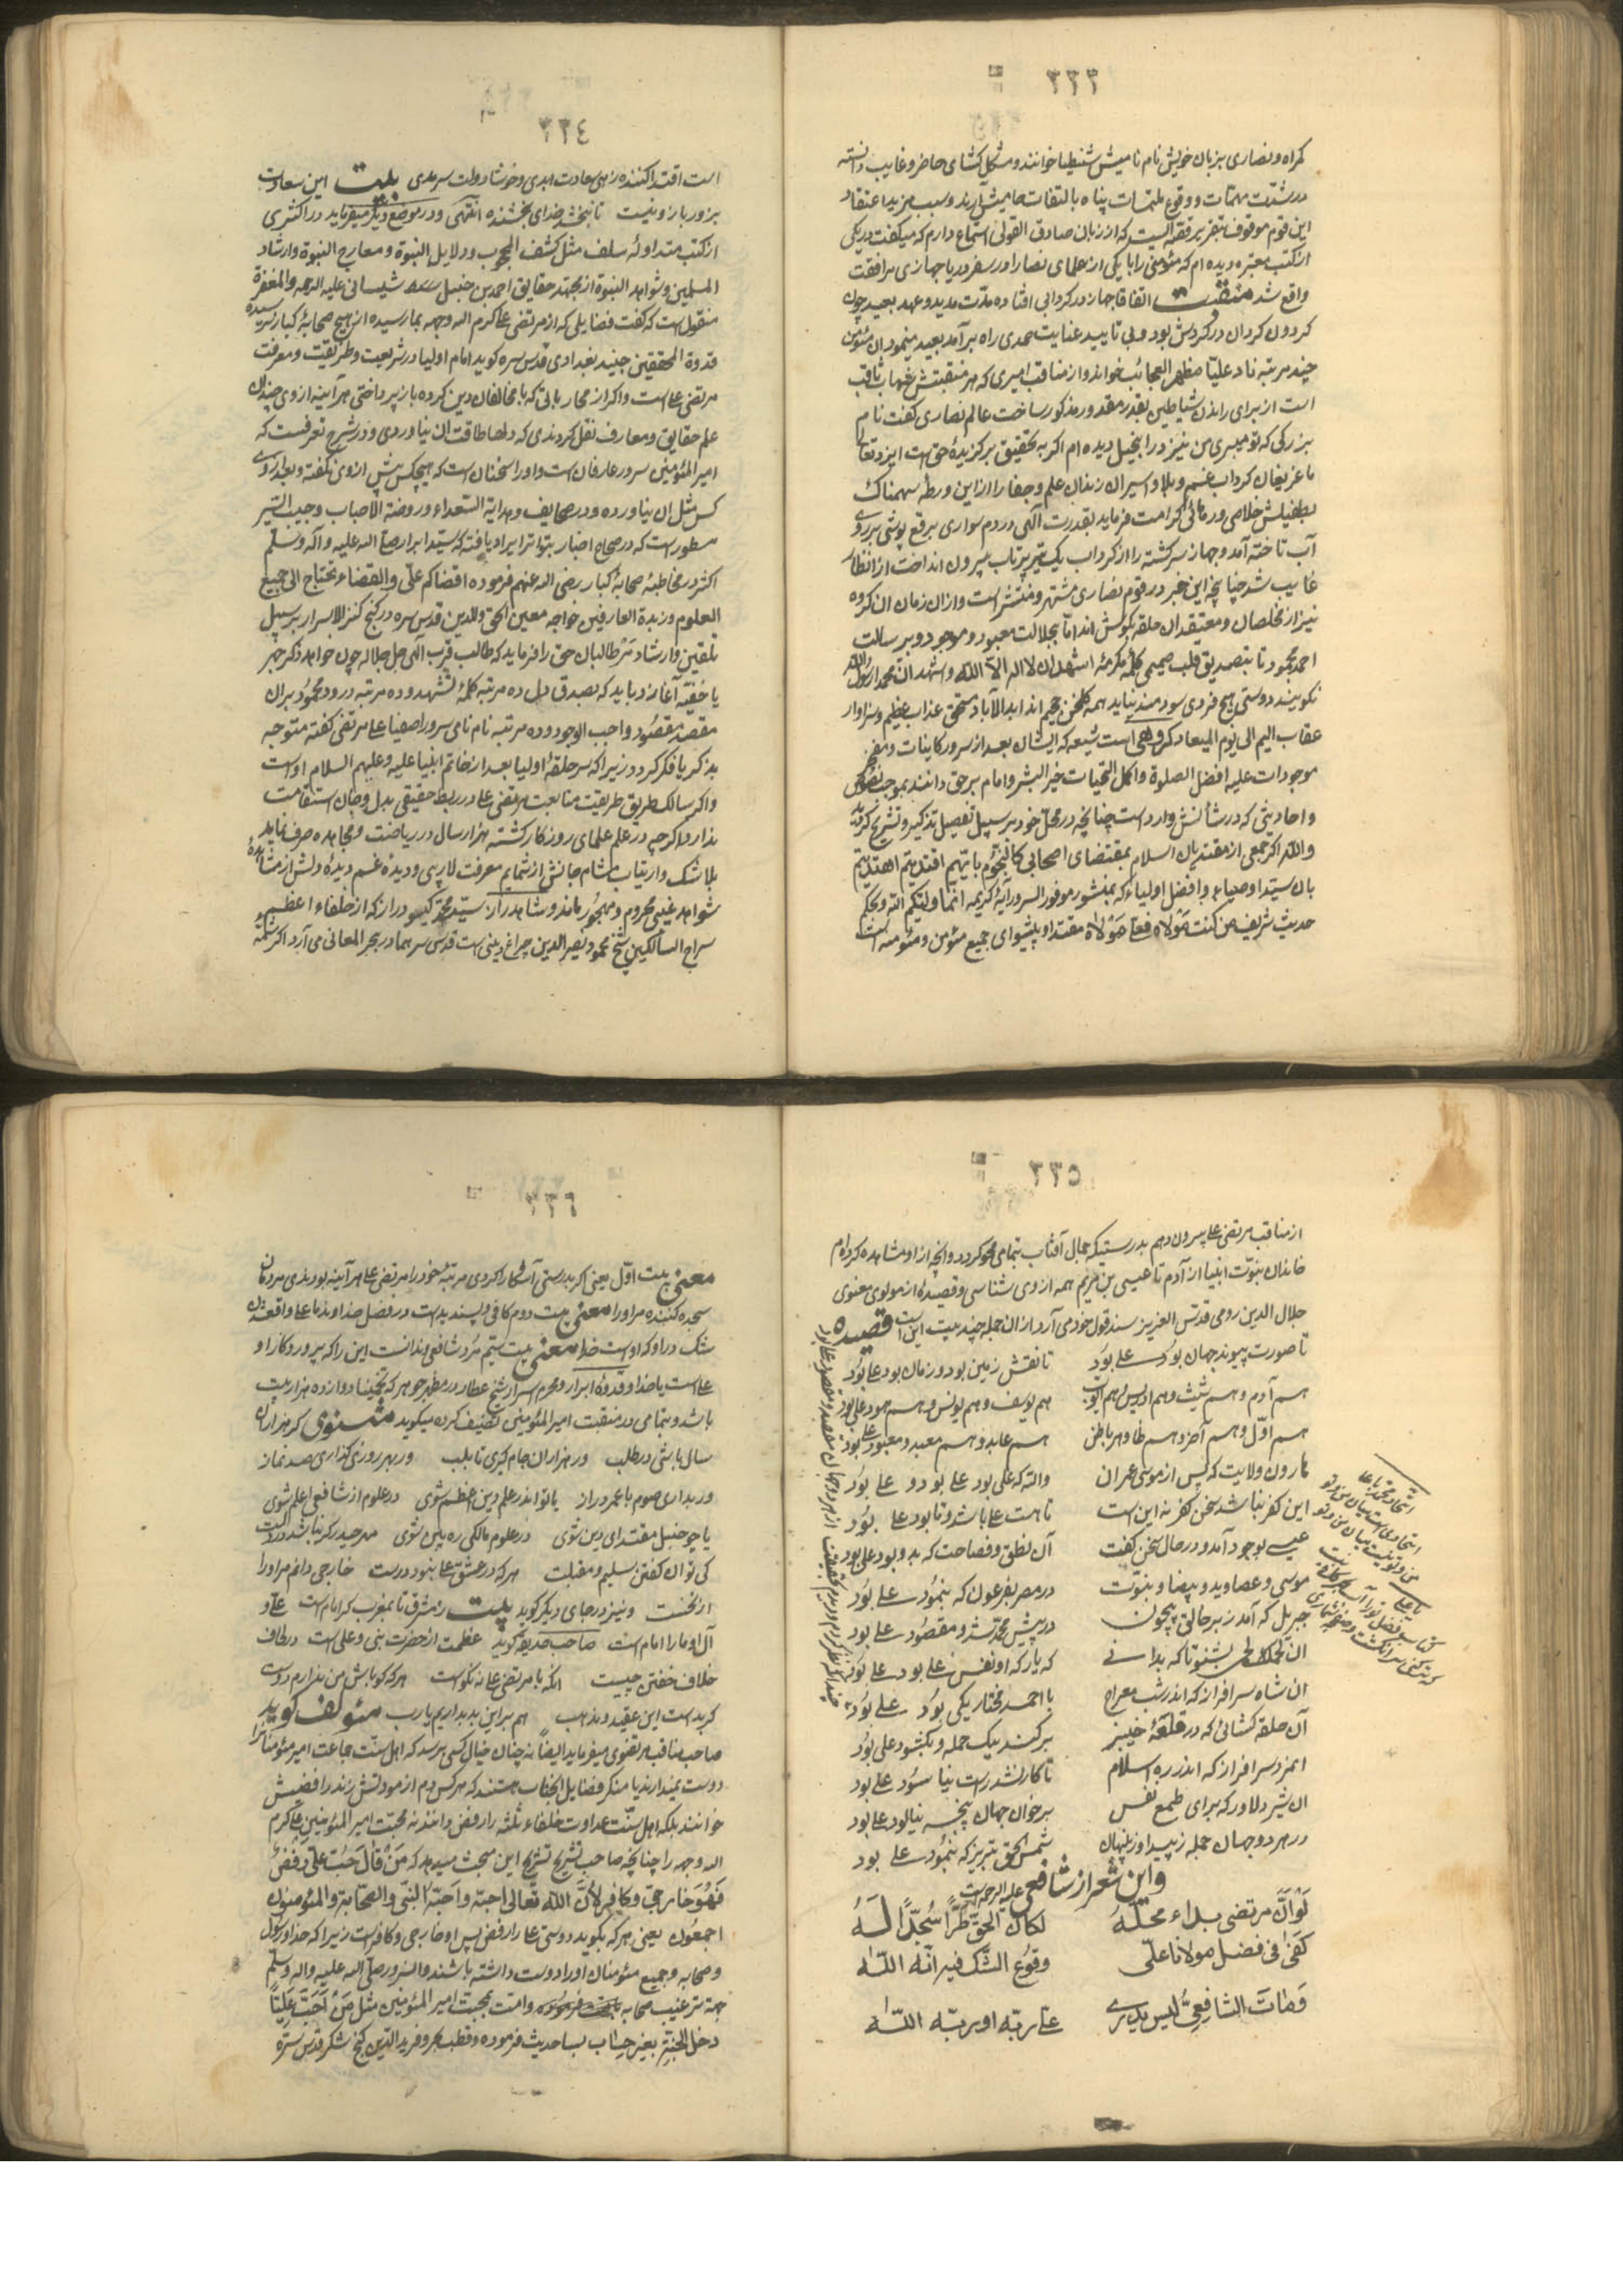 ٣٣٣
گمراه و نصاری بزبان خویش نام نامیش شنطیا خوانند و مشکل کشای حاضر و غایب دانسته
در شدّت مهمّات و وقوع ملتمسات پناه بالتفات حمایتش آرند و سبب مزید اعتقاد
این قوم موقوف بتقریر قصّه ایست که از زبان صادق القولی استماع دارم که میگفت در یکی
از کتب معتبره دیده ام که مؤمنی را با یکی از علمای نصارا در سفر دریا جهازی مرافقت
واقع شد منقبت اتفاقا جهاز در گردابی افتاده مدّت مدید و عهد بعید چون
گردون گردان در گردش بود و بی تایید عنایت صمدی راه برآمد بعید مینمود ان مؤمن
چند مرتبه ناد علیّا مظهر العجائب خواند و از مناقب امیری که هر منقبتش شهاب ثاقب
است از برای راندن شیاطین بقدر مقدور مذکور ساخت عالم نصاری گفت نام
بزرگی که تو میبری من نیز در انجیل دیده ام اگر به تحقیق برگزیدهٔ حق است ایزد تعالی
ما غریقان گرداب غم و بلا و اسیران زندان علم و جفا را از این ورطهٔ سهمناک
بطفیلش خلاصی و رهائی کرامت فرماید بقدرت الهی در دم سواری برقع پوشی بر روی
آب تاخته آمد و جهاز سرگشته را از گرداب یک تیر پرتاب بیرون انداخت از انظار
غایب شد چنانچه این خبر در قوم نصاری مشتهر و منتشر است و از ان زمان ان گروه
نیز از مخلصان و معتقدان حلقه بگوش اند امّا بجلالت معبود و موجود و برسالت
احمد محمود تا بتصدیق قلب صمیمی کلمهٔ مکرمهٔ اشهد ان لا اله الّا اللّه و اشهد ان محمدا رسول اللّه
نگویند دوستی هیچ فردی سودمند نیاید همه گلخن جحیم اند ابد الآباد مستحق عذاب عظیم و سزاوار
عقاب الیم الی یوم المیعاد گروهی است شیعه که ایشان بعد از سرور کاینات و مفخر
موجودات علیه افضل الصلوة و اکمل التحیّات خیر البشر و امام برحق دانند بموجب نصوص
و احادیثی که در شأنش وارد است چنانچه در محلّ خود بر سبیل تفصیل تذکیر و تشریح گردید
واللّه اگر جمعی از مقتدیان اسلام بمقتضای اصحابی کالنّجوم بایّهم اقتدیتم اهتدیتم
بان سیّد اوصیا و افضل اولیا که بمنشور موفور السرور آیهٔ کریمه انّما ولیّکم اللّه و بحکم
حدیث شریف من کنت مولاه فعلی مولاه مقتدا و پیشوای جمیع مؤمن و مؤمنه است
٣٣٤
است اقتدا کننده زهی سعادت ابدی و خوشا دولت سرمدی بیت این سعادت
بزور بازو نیست تا نبخشد خدای بخشنده انتهی و در موضع دیگر میفرماید در اکثری
از کتب متداولهٔ سلف مثل کشف المحجوب و دلایل النبوة و معارج النبوة و ارشاد
المسلمین و شواهد النبوة از مجتهد حقایق احمد بن حنبل شیبانی علیه الرحمه والمغفرة
منقول است که گفت فضایلی که از مرتضی علی کرم اللّه وجهه بما رسیده از هیچ صحابهٔ کبار نرسیده
قدوة المحققین جنید بغدادی قدّس سره گوید امام اولیا در شریعت و طریقت و معرفت
مرتضی علی است و اگر از محارباتی که با مخالفان دین کرده باز پرداختی هر آینه از وی چندان
علم حقایق و معارف نقل کردندی که دلها طاقت ان نیاوردی و در شرح تعرفست که
امیر المؤمنین سرور عارفان است و او را سخنان است که هیچکس پیش از وی نگفته و بعد از وی
کس مثل ان نیاورده و در صحایف و هدایة السّعداء و روضة الاحباب و حبیب السّیر
مسطور است که در صحاح اخبار بتواتر ایراد یافته که سیّد ابرار صلی اللّه علیه و آله و سلّم
اکثر در مخاطبهٔ صحابهٔ کبار رضی اللّه عنهم فرموده اقضاکم علیّ و القضاء تحتاج الی جمیع
العلوم و زبدة العارفین خواجه معین الحق و الدین قدس سره در گنج کنز الاسرار بر سبیل
تلقین و ارشاد مر طالبان حق را فرماید که طالب قرب الهی جل جلاله چون خواهد ذکر جهر
یا خفیّه آغازد باید که بصدق دل ده مرتبه کلمهٔ تشهد و ده مرتبه درود محمود بر ان
مقصد مقصود واجب الوجود و ده مرتبه نام نامی سرور اصفیا علی مرتضی گفته متوجه
بذکر یا فکر گردد زیرا که سر حلقهٔ اولیا بعد از خاتم انبیا علیه و علیهم السلام اوست
و اگر سالک طریق طریقت متابعت مرتضی علی در ربط حقیقی بدل و جان استقامت
ندارد اگرچه در علم علمای روزگار گشته هزار سال در ریاضت و مجاهده صرف نماید
بلا شک و ارتیاب مشام جانش از شمایم معرفت لاریبی و دیدهٔ غم دیدهٔ دلش از مشاهدهٔ
شواهد غیبی محروم و مهجور ماند و شاهد راز سیّد محمّد گیسو دراز که از خلفاء اعظم
سراج السّالکین شیخ محمود نصیر الدین چراغ دینی است قدس سرهما در بحر المعانی می آرد اگر شمّهٔ
٣٣٥
از مناقب مرتضی علی بیرون دهم بدرستیکه جمال آفتاب بتمامی محو گردد و آنچه از او مشاهده کرده ام
خاندان نبوّت انبیا از آدم تا عیسی بن مریم همه از وی شناسی و قصیدهٔ از مولوی معنوی
جلال الدین رومی قدّس العزیز سند قول خود می آرد از ان جمله چند بیت این است قصیده
تا صورت پیوند جهان بود علی بود تا نقش زمین بود و زمان بود علی بود
هم آدم و هم شیث و هم ادریس و هم ایّوب هم یوسف و هم یونس و هم هود علی بود
هم اوّل و هم آخر و هم ظاهر و باطن هم عابد و هم معبد و معبود علی بود
هارون ولایت که پس از موسی عمران واللّه که علی بود علی بود و علی بود
این کفر نباشد سخن کفر نه این است تا هست علی باشد و تا بود علی بود
عیسی بوجود آمد و در حال سخن گفت آن نطق و فصاحت که بدو بود علی بود
موسی و عصا و ید و بیضا و نبوّت در مصر بفرعون که بنمود علی بود
جبریل که آمد ز بر خالق بیچون در پیش محمّد شد و مقصود علی بود
ان لحمک لحمی بشنو تا که بدانی که یار که او نفس نبی بود علی بود
ان شاه سرافراز که اندر شب معراج با احمد مختار یکی بود علی بود
آن حلقه کشائی که در قلعهٔ خیبر برکند بیک حمله و بکشود علی بود
ان مرد سرافراز که اندر ره اسلام تا کار نشد راست نیاسود علی بود
ان شیر دلاور که برای طمع نفس بر خوان جهان پنجه نیالود علی بود
در هر دو جهان جمله ز پیدا و ز پنهان شمس الحق تبریز که بنمود علی بود
واین شعر از شافعی علیه الرحمه است
لَوْ اَنّ مرتضی بداء محلّهُ لکان الحقّ طرّا سُجّدا لَهُ
کفی فی فضل مولانا علیّ وقوع الشّک فیه انّه اللّه
وَمَاتَ الشافعیّ لیس یدری علی ربّه او ربّه اللّه
٣٣٦
معنی بیت اوّل یعنی اگر بدرستی آشکارا کردی مرتبهٔ خود را مرتضی علی هر آینه بودندی مردمان
سجده کننده مر او را معنی بیت دوم کافی و پسندیده است در فضل خداوند ما علی واقع شدن
شک در او که اوست خدا معنی بیت سیّم مُرد شافعی و ندانست این را که پروردگار او
علی است یا خدا و قدوهٔ ابرار و محرم اسرار شیخ عطار در مظهر جوهر که تخمینا دوازده هزار بیت
باشد و بتمامی در منقبت امیر المؤمنین تصنیف کرده میگوید مثنوی گر هزاران
سال باشی در طلب ور هزاران جام گیری تا بلب ور بهر روزی گذاری صد نماز
ور بداری صوم با عمر دراز یا تو اندر علم دین اعظم شوی در علوم از شافعی اعلم شوی
یا چو حنبل مقتدای دین شوی در علوم مالکی ره بین شوی مهر حیدر گر نباشد در دلت
کی توان گفتن سلیم و مقبلت هر که در عشق علی نبود درست خارجی دانم مر او را
از نخست و نیز در جای دیگر گوید بیت ز مشرق تا بمغرب گر امام است علی و
آل او ما را امام است صاحب حدیقه گوید عظمت از حضرت نبی و علی است در طاف
خلاف خفتن چیست انکه با مرتضی علی نه نکوست هر که گو باش من ندارم دوست
گر بد است این عقیده و مذهب هم بر این بد بداریم یا رب مؤلف گوید
صاحب مناقب مرتضوی میفرماید ایضا نه چنان خیال کسی برسد که اهل سنّت جماعت امیر مؤمنانرا
دوست نمیدارند یا منکر فضایل انجناب هستند که هر کس دم از مودتش زند رافضیش
خوانند بلکه اهل سنّت عداوت خلفاء ثلثه را رفض دانند نه محبّت امیر المؤمنین علی کرم
اللّه وجهه را چنانچه صاحب تشریح تشریح این مبحث میدهد که مَنْ قالَ حُبّ علیّ رفض
فَهُوَ خارجیّ و کافر لأنّ اللّه تعالی احبّه و احبّه النّبی والصّحابة والمؤمنون
اجمعون یعنی هر که بگوید دوستی علی را رفض پس او خارجی و کافر است زیرا که خدا و رسول
و صحابه و جمیع مؤمنان او را دوست داشته باشند و انسرور صلّی اللّه علیه واله وسلّم
بجهة ترغیب صحابه و امّت بمحبّت امیر المؤمنین مثل مَنْ اَحَبّ عَلِیّاً
دخل الجنّة بغیر حساب بسا حدیث فرموده و قطب بحر و بر فرید الدّین گنج شکر قدّس سرّه